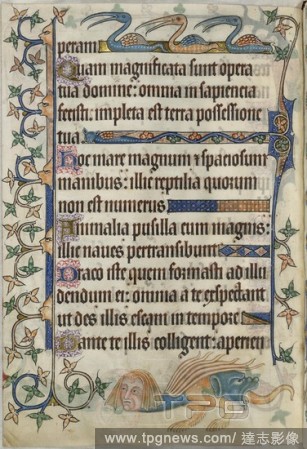 peram
Quam magnificata sunt opera
tua domine: omnia in sapiencia
fecisti: impleta est terra possessione
tua
Hoc mare magnum & spaciosum
manibus: illic reptilia quorum
non est numerus
Animalia pusilla cum magnis:
naues pertransibunt
Draco iste quem formasti ad illu
dendum ei: omnia a te expectant
ut des illis escam in tempore
Dante te illis colligent: aperien
TPG
www.tpgnews.com/ 達志影像